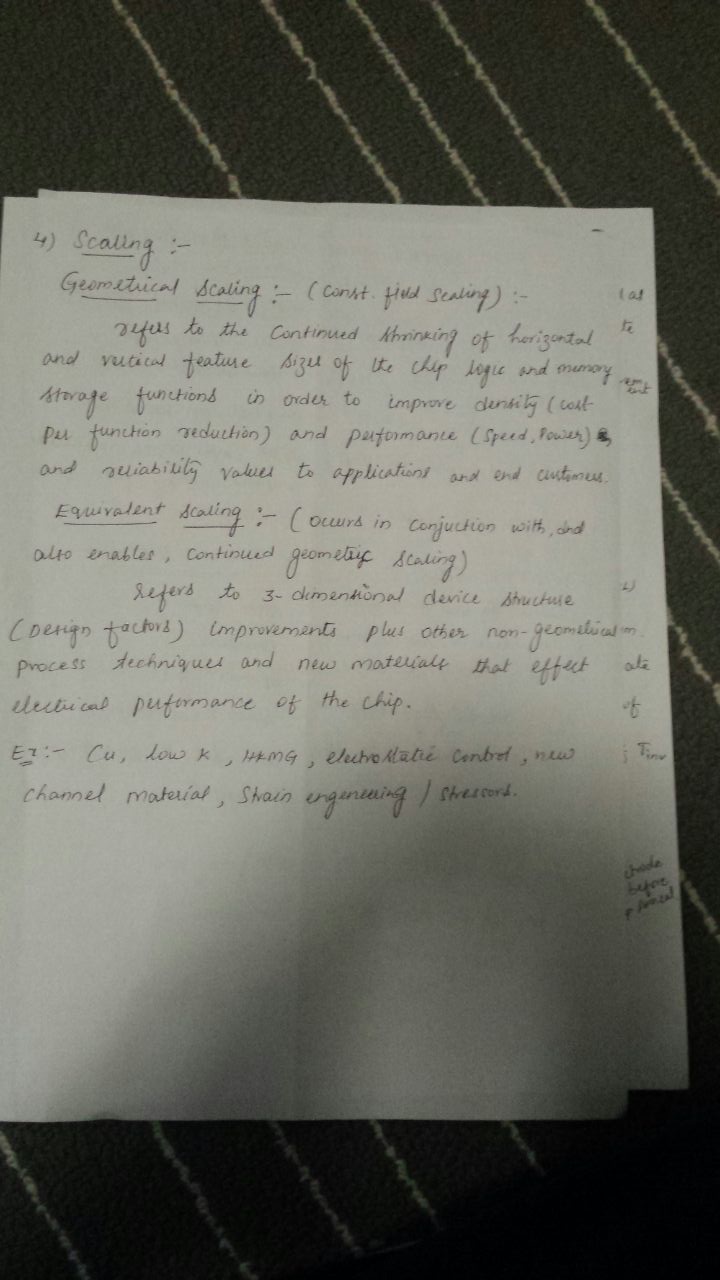 4) Scaling :-
Geometrical Scaling :- (Const. field scaling) :-
refers to the Continued Shrinking of horizontal
and vertical feature sizes of the chip logic and memory
Storage functions in order to improve density (cost
per function reduction) and performance (Speed, Power)
and reliability values to applications and end customers.
Equivalent Scaling :- (occurs in conjuction with, and
also enables, Continued geometric Scaling)
Refers to 3-dimensional device Structure
(Design factors) improvements plus other non-geometrical
process techniques and new materials that effect
electrical performance of the chip.
Ex:- Cu, low K, HKMG, electrostatic control, new
channel material, Strain engeneering / Stressors.
(as
te
ate
of
; Tinv
before